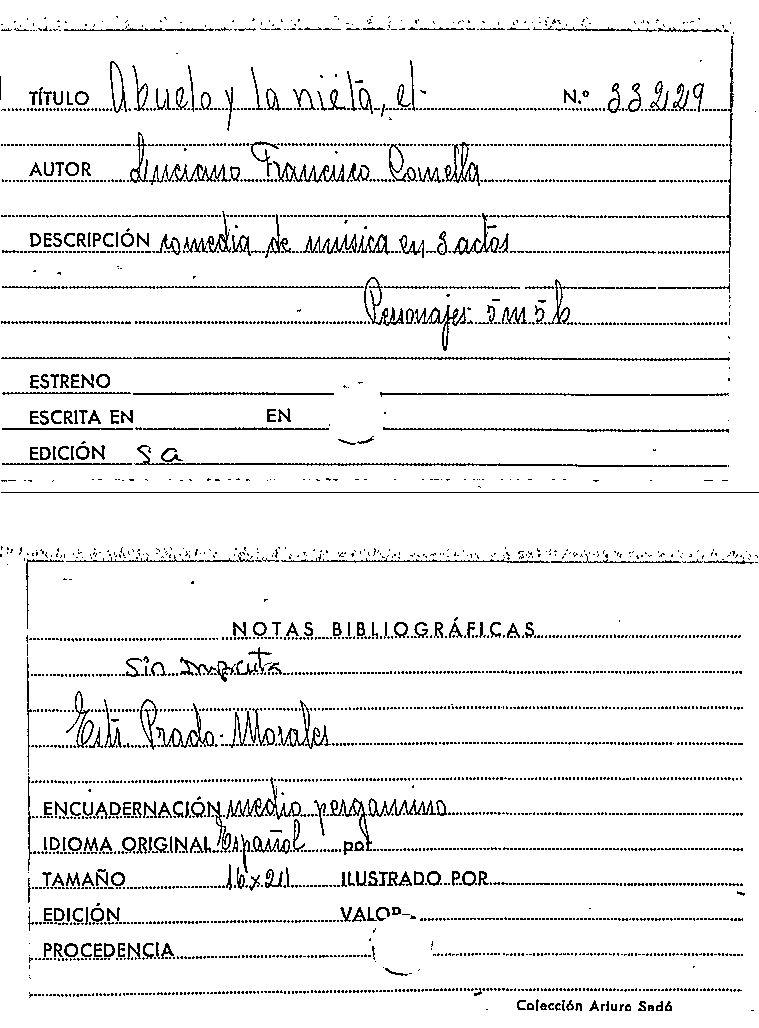 TÍTULO Abuelo y la nieta, el- N.º 33229
AUTOR Luciano Francisco Comella
DESCRIPCIÓN comedia de música en 3 actos
Personajes: 5 m 5 h
ESTRENO
ESCRITA EN EN
EDICIÓN S a
NOTAS BIBLIOGRÁFICAS
Sin Imprenta
Prado-Morales
ENCUADERNACIÓN medio pergamino
IDIOMA ORIGINAL Español por
TAMAÑO 16x21 ILUSTRADO POR
EDICIÓN VALOR
PROCEDENCIA
Colección Arturo Sedó